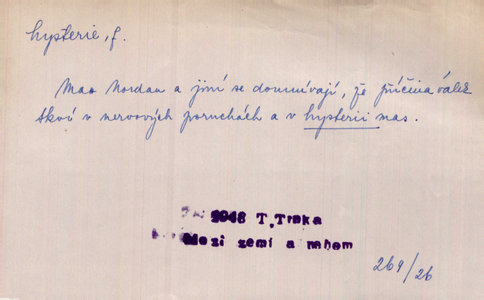 hysterie, f.
Max Nordau a jiní se domnívají, že příčina válek
tkví v nervových poruchách a v hysterii mas.
1948 T.Trnka
Mezi zemí a nebem
269/26